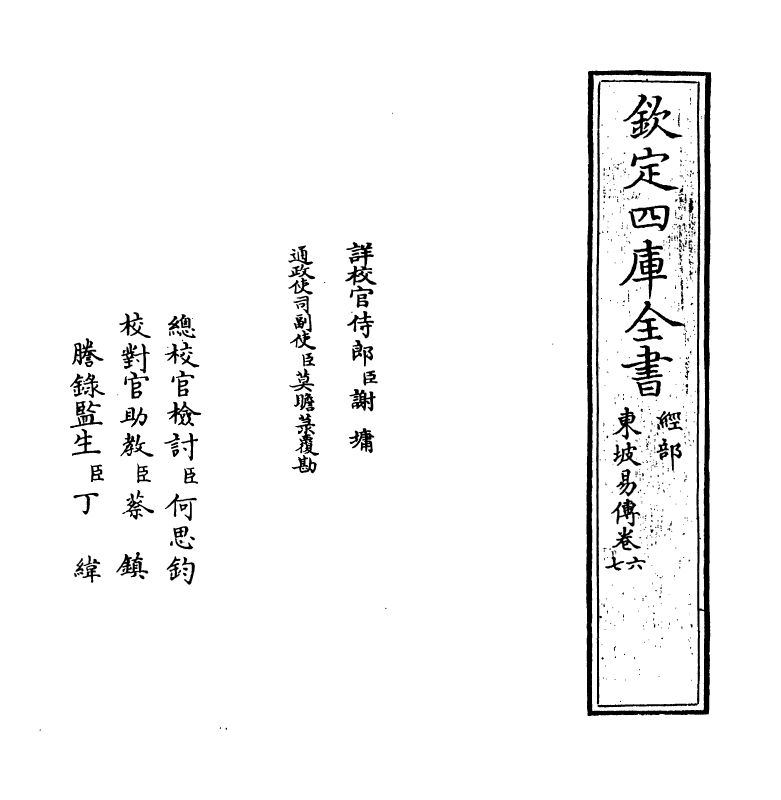 欽定四庫全書
經部
東坡易傳卷六七
詳校官侍郎臣謝墉
通政使司副使臣莫瞻菉覆勘
總校官檢討臣何思鈞
校對官助教臣蔡鎮
謄錄監生臣丁緯